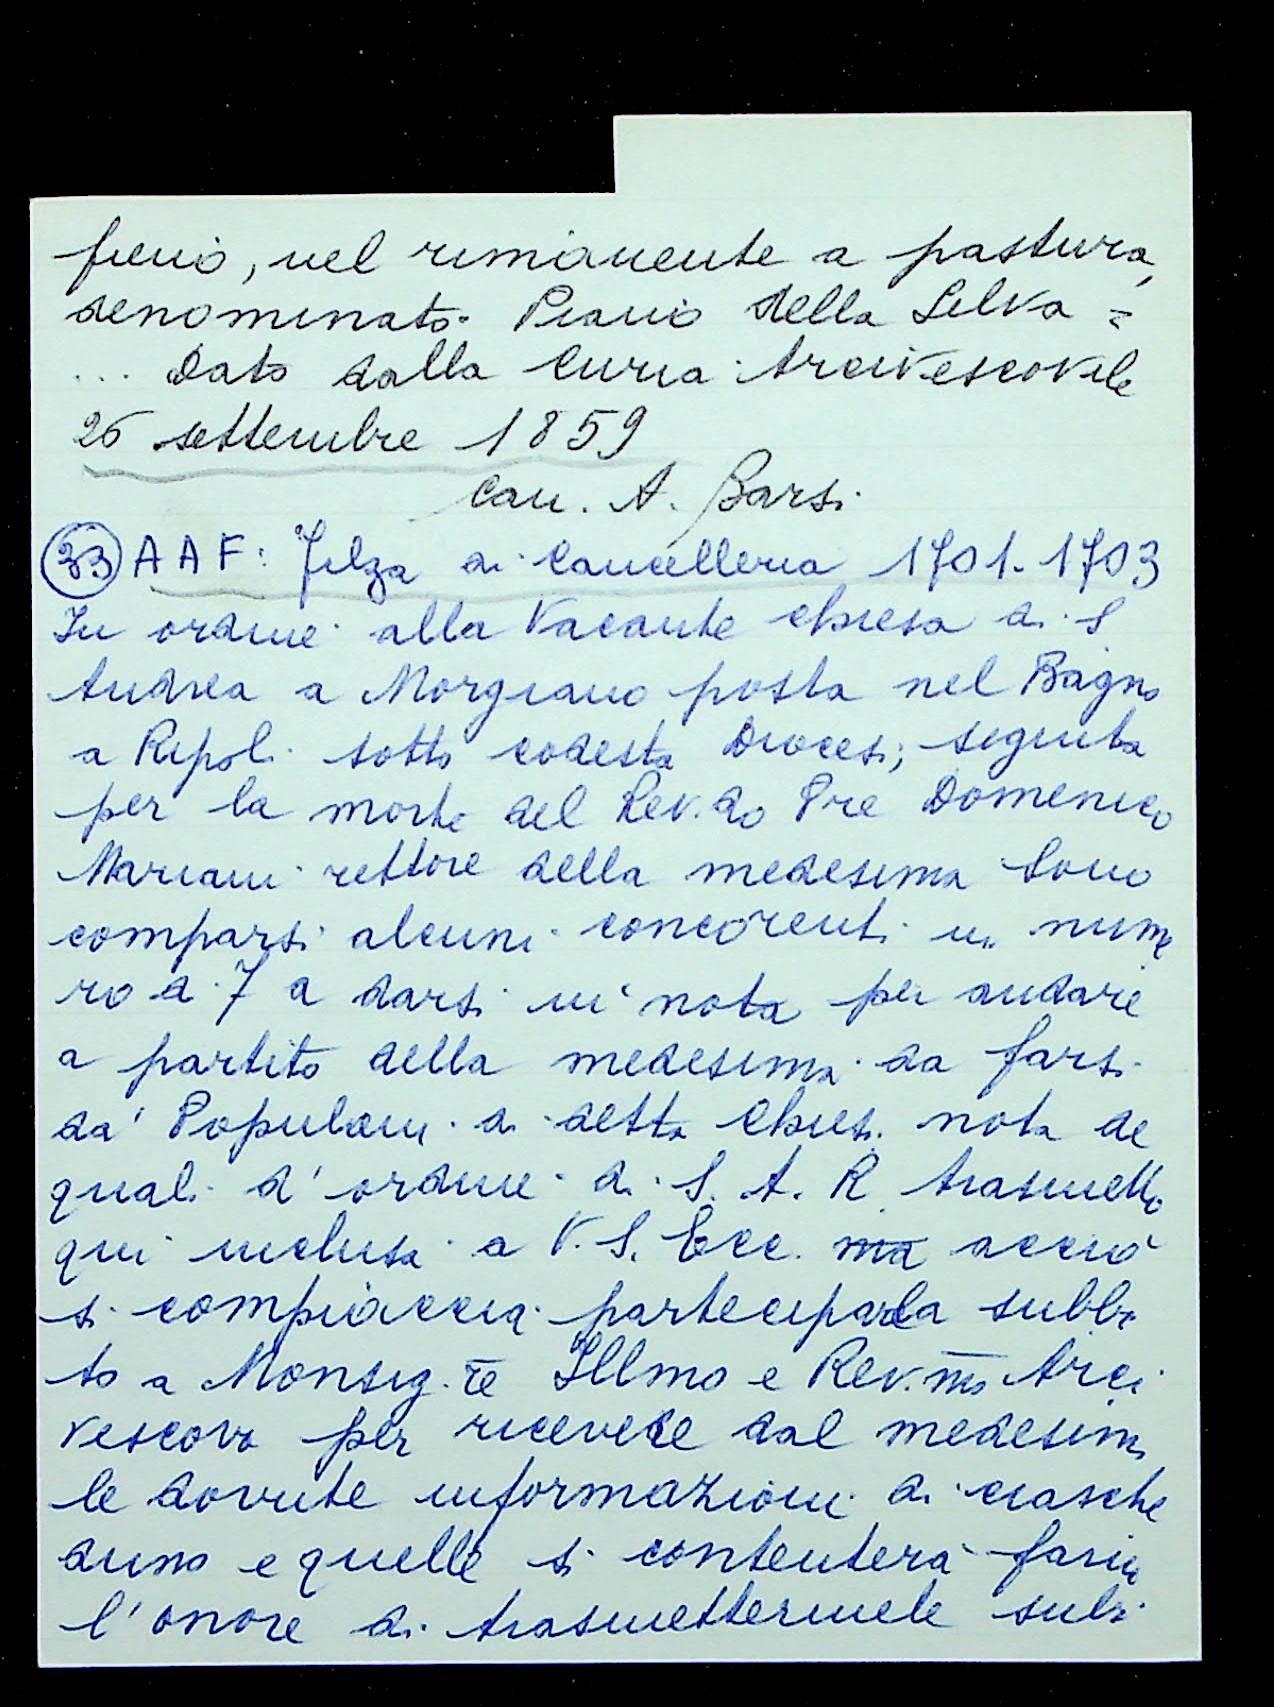 fieno, nel rimanente a pastura,
denominato Piano della Selva =
... Dato dalla Curia Arcivescovile
26 settembre 1859
Can. A. Barsi
33 A A F: Filza di Cancelleria 1701-1703
In ordine alla Vacante chiesa di S
Andrea a Morgiano posta nel Bagno
a Ripoli sotto codesta Diocesi; seguita
per la morte del Rev.do Pre Domenico
Mariani rettore della medesima Sono
comparsi alcuni concorenti in nume
ro di 7 a darsi in nota per andare
a partito della medesima da farsi
da' Popolani di detta Chiesa nota de
quali d'ordine di S. A. R trasmetto
qui inclusa a V. S. Ecc. ma acciò
si compiaccia parteciparla subbi
to a Monsig. re Illmo e Rev. mo Arci
vescovo per ricevere dal medesimo
le dovute informazioni di ciasche
duno e quelle si contenterà farmi
l'onore di trasmettermele subi